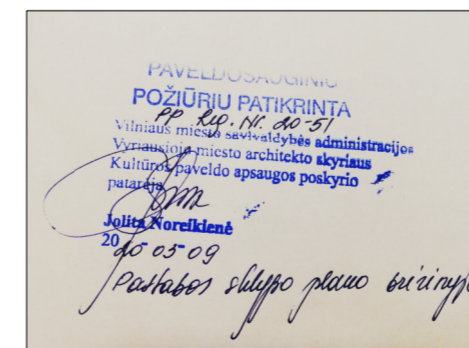 PAVELDOSAUGINIU
POŽIŪRIU PATIKRINTA
PP Reg. Nr. 20-51
Vilniaus miesto savivaldybės administracijos
Vyriausiojo miesto architekto skyriaus
Kultūros paveldo apsaugos poskyrio
patarėja
Jolita Noreikienė
2020-03-09
Pastabos sklypo plano brėžinyje